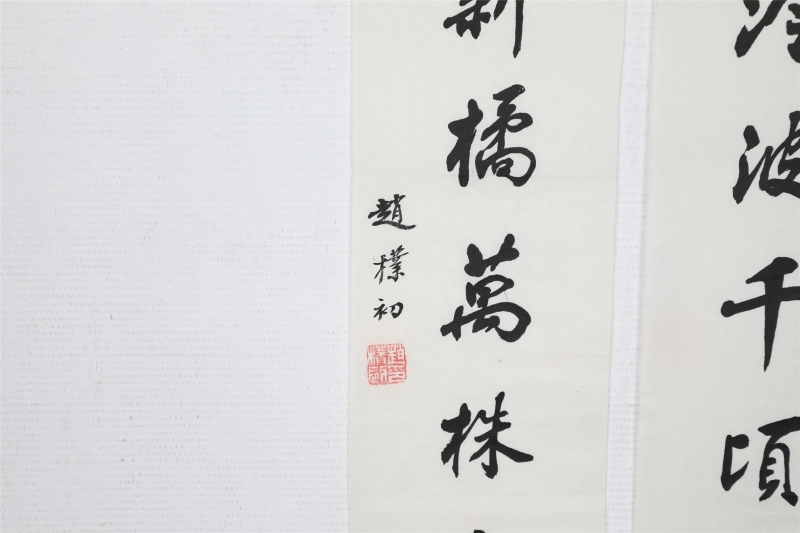 波千頃
新橘萬株
趙樸初